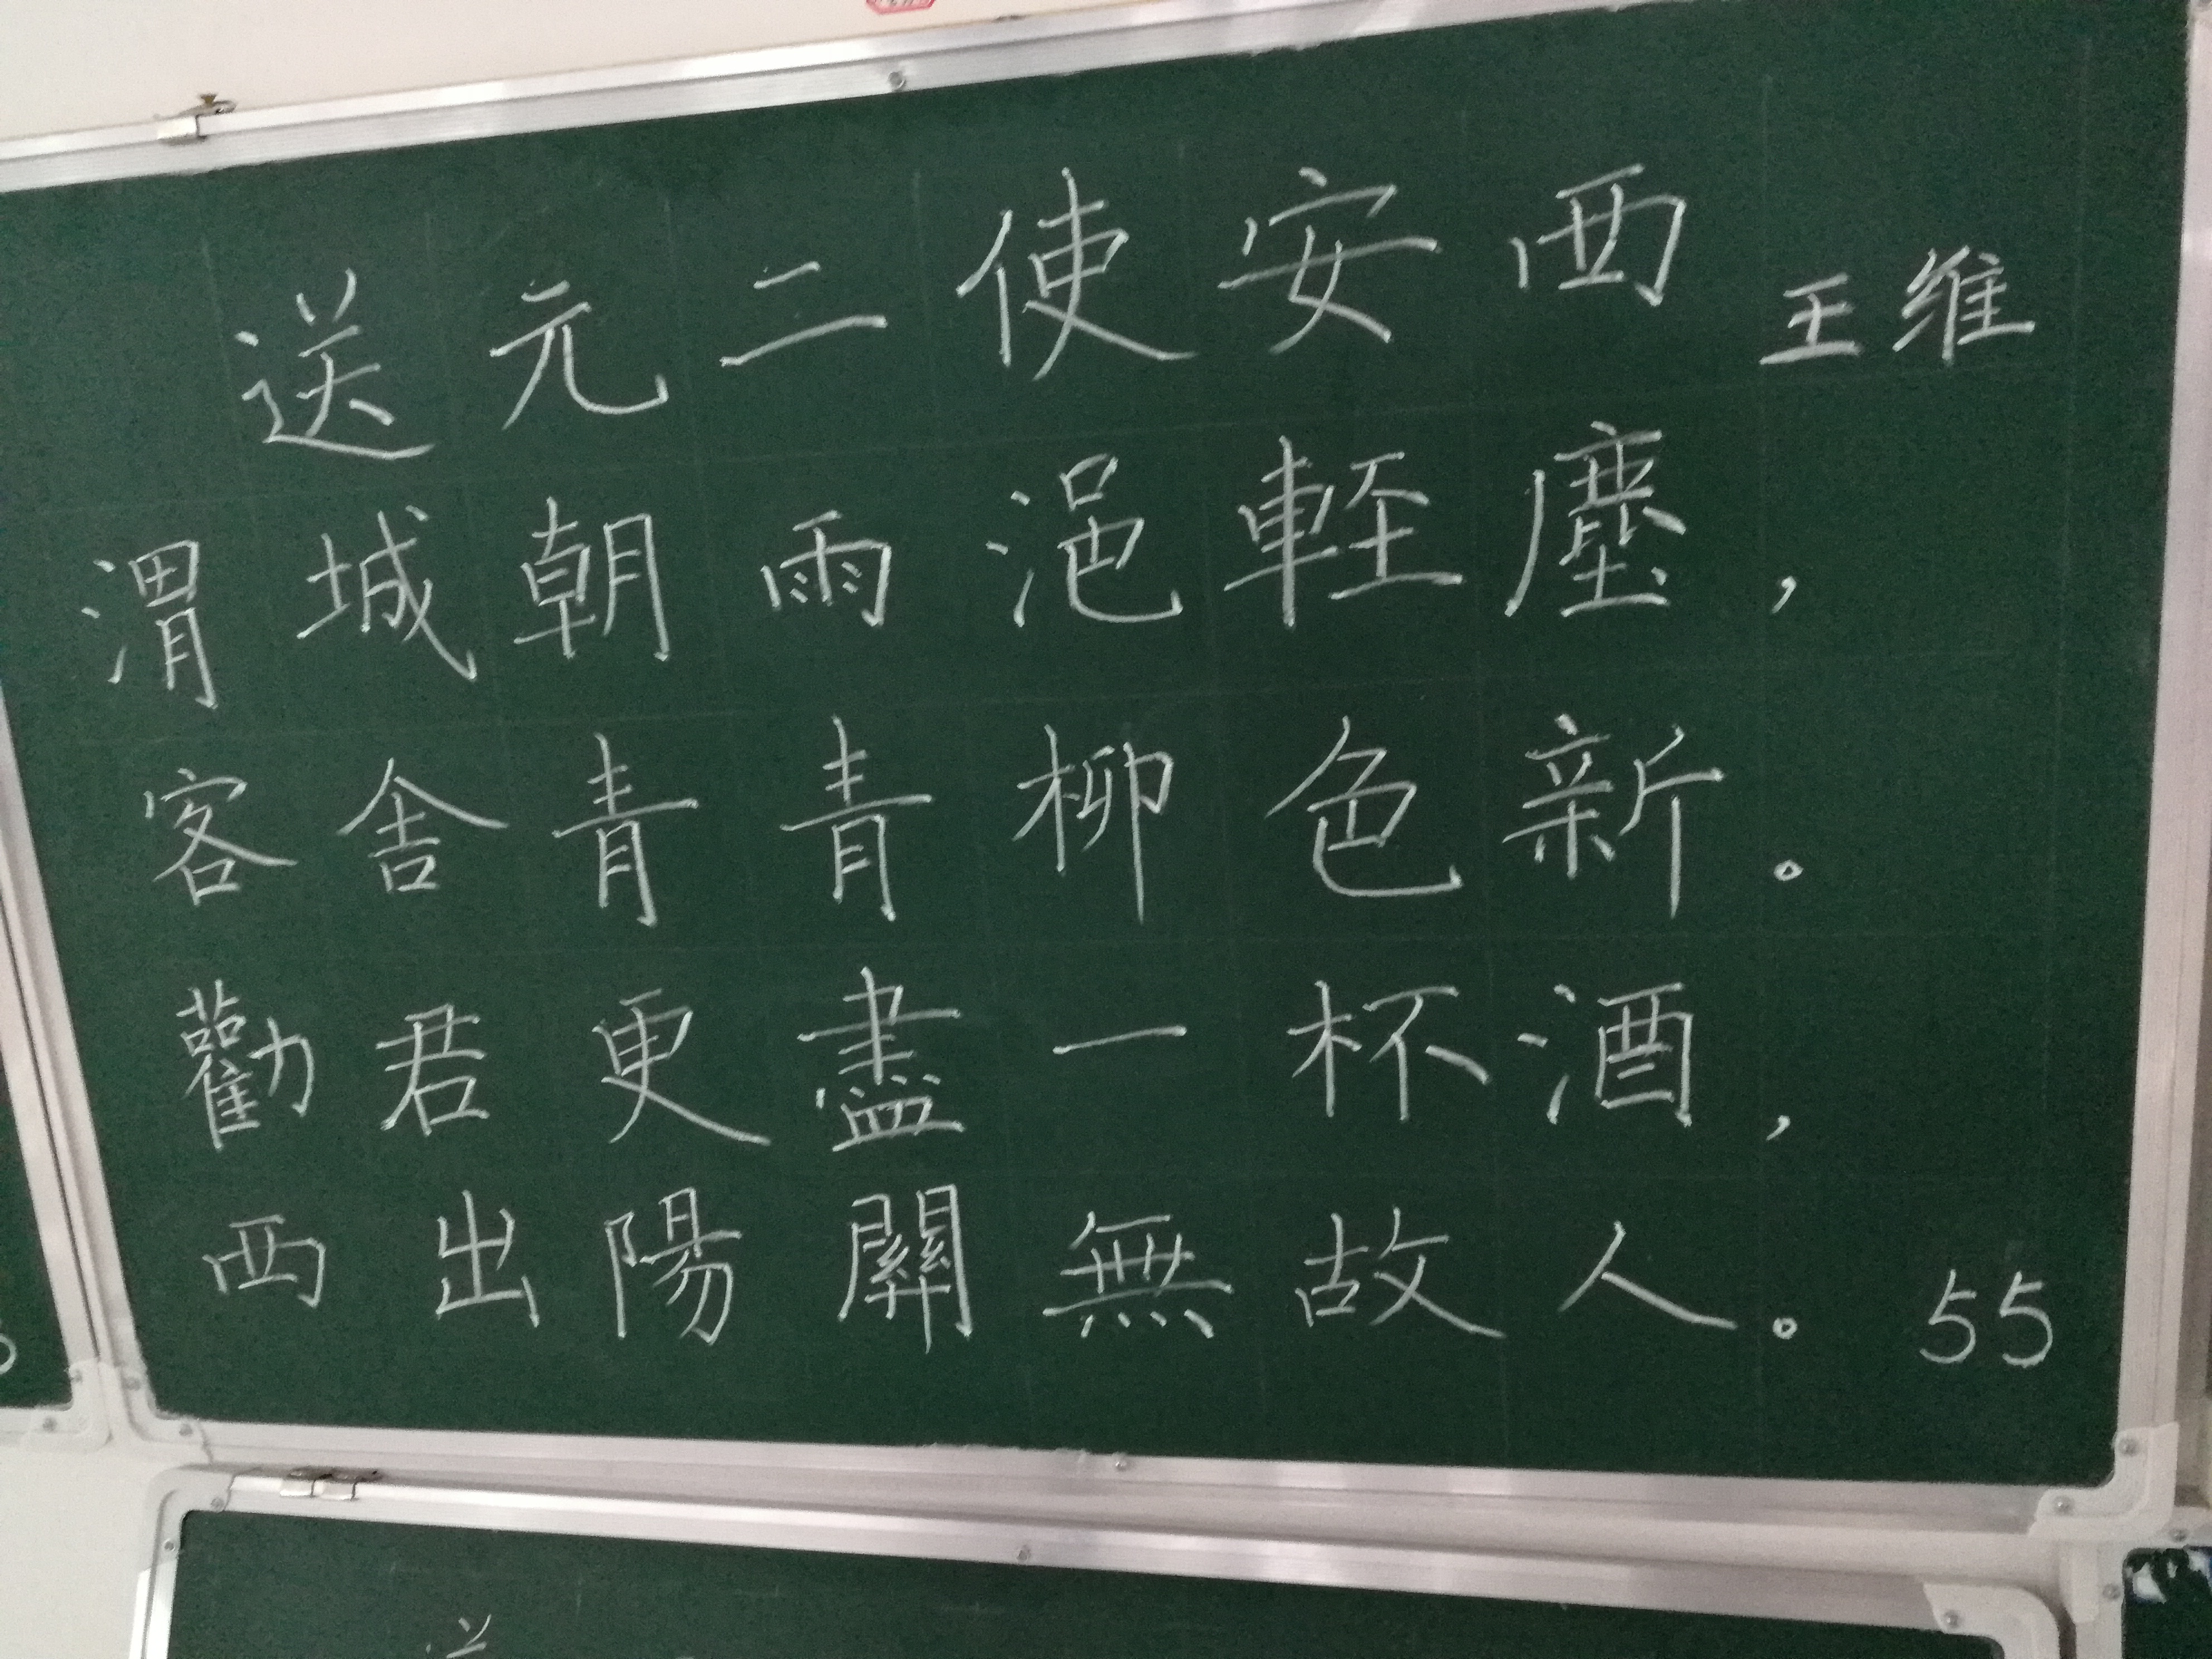 送元二使安西 王维
渭城朝雨浥輕塵，
客舍青青柳色新。
勸君更盡一杯酒，
西出陽關無故人。 55